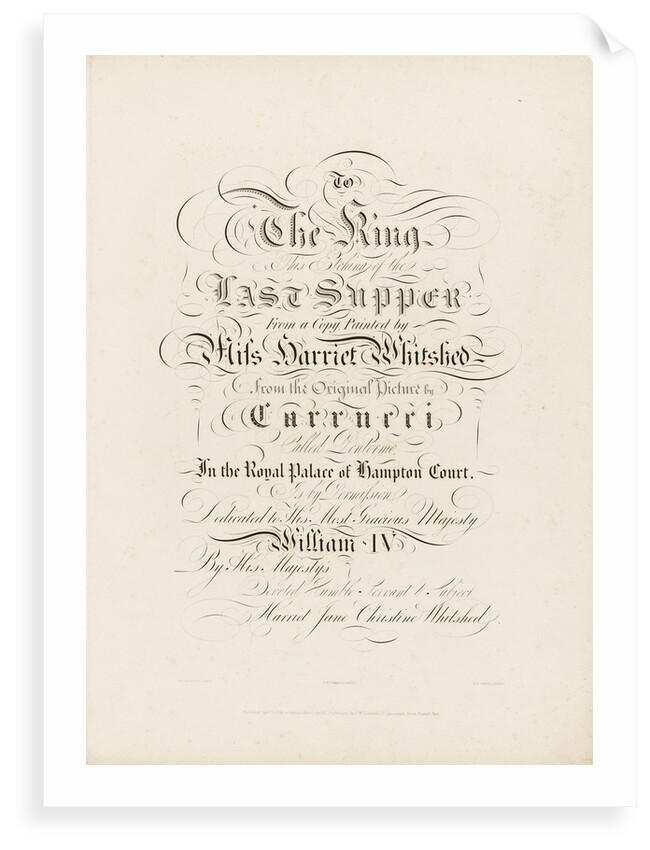 To
The King
This Etching of the
LAST SUPPER
From a Copy Painted by
Miſs Harriet Whitshed
From the Original Picture by
Carrucci
Called Pontormo
In the Royal Palace of Hampton Court.
Is by Permiſsion
Dedicated to His Most Gracious Majesty
William IV
By His Majesty's
Devoted Humble Servant & Subject
Harriet Jane Christine Whitshed.